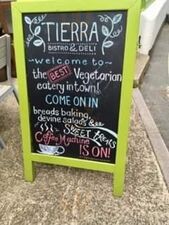 TIERRA
BISTRO & DELI
welcome to
the BEST Vegetarian
eatery in town!
COME ON IN
breads baking,
devine salads &
SWEET treats
Coffee Machine
IS ON!